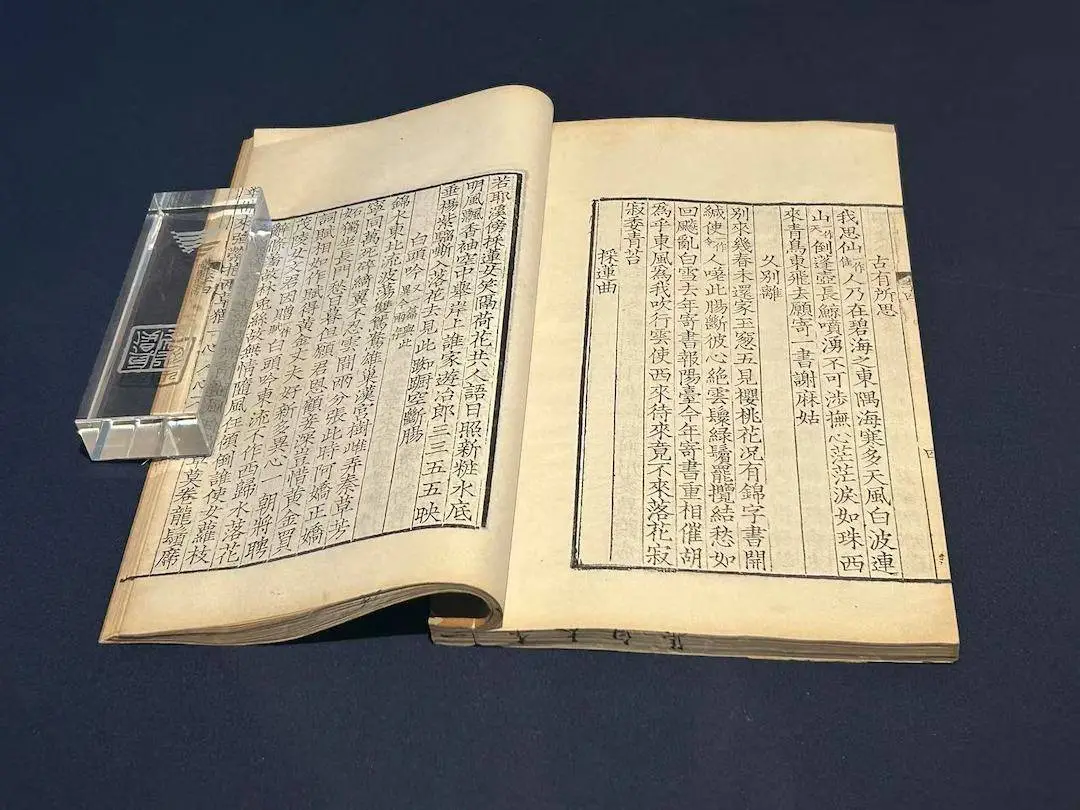 古有所思
我思仙一作佳人乃在碧海之東隅海寒多天風白波連
山一作天倒蓬壺長鯨噴湧不可涉撫心茫茫淚如珠西
來青鳥東飛去願寄一書謝麻姑
久別離
別來幾春未還家玉窓五見櫻桃花况有錦字書開
緘使一作令人嗟此腸斷彼心絶雲鬟綠鬢罷攬結愁如
回飈亂白雪去年寄書報陽臺今年寄書重相催胡
為乎東風為我吹行雲使西來待來竟不來落花寂
寂委青苔
採蓮曲
若耶溪傍採蓮女笑隔荷花共人語日照新粧水底
明風飄香袖空中舉岸上誰家遊冶郎三三五五映
垂楊紫騮嘶入落花去見此踟蹰空斷腸
白頭吟
錦水東北流波蕩雙鴛鴦雄巢漢宮樹雌弄秦草芳
寧同萬死碎綺翼不忍雲間兩分張此時阿嬌正嬌
妬獨坐長門愁日暮但願君恩顧妾深豈惜黃金買
詞賦相如作賦得黃金丈夫好新多異心一朝將聘
茂陵女文君因贈賦一作白頭吟東流不作西歸水落花
辭條羞故林兔絲故無情隨風任傾倒誰使女蘿枝
而來強縈抱兩草猶一心人心莫卷龍鬚席